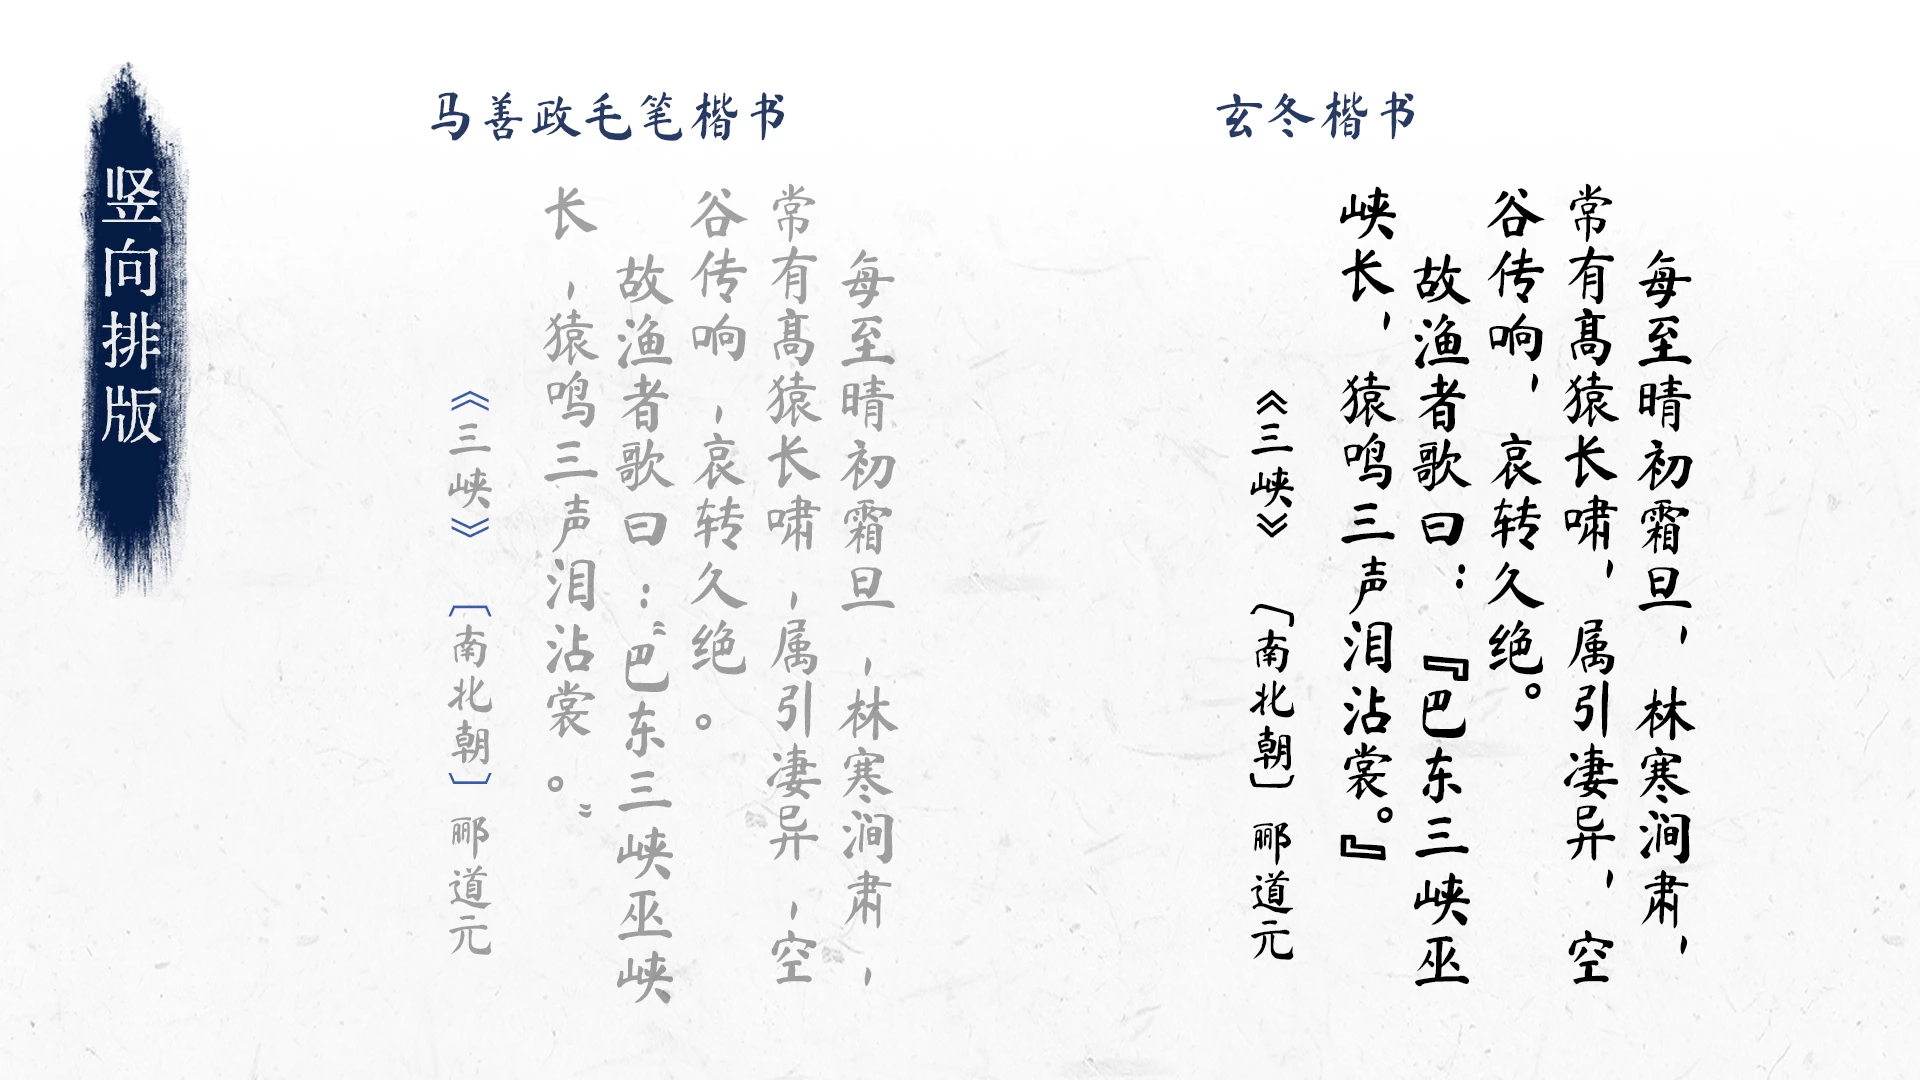 竖向排版
马善政毛笔楷书
每至晴初霜旦，林寒涧肃，
常有高猿长啸，属引凄异，空
谷传响，哀转久绝。
故渔者歌曰：“巴东三峡巫峡
长，猿鸣三声泪沾裳。”
《三峡》〔南北朝〕郦道元
玄冬楷书
每至晴初霜旦，林寒涧肃，
常有高猿长啸，属引凄异，空
谷传响，哀转久绝。
故渔者歌曰：『巴东三峡巫
峡长，猿鸣三声泪沾裳。』
《三峡》〔南北朝〕郦道元